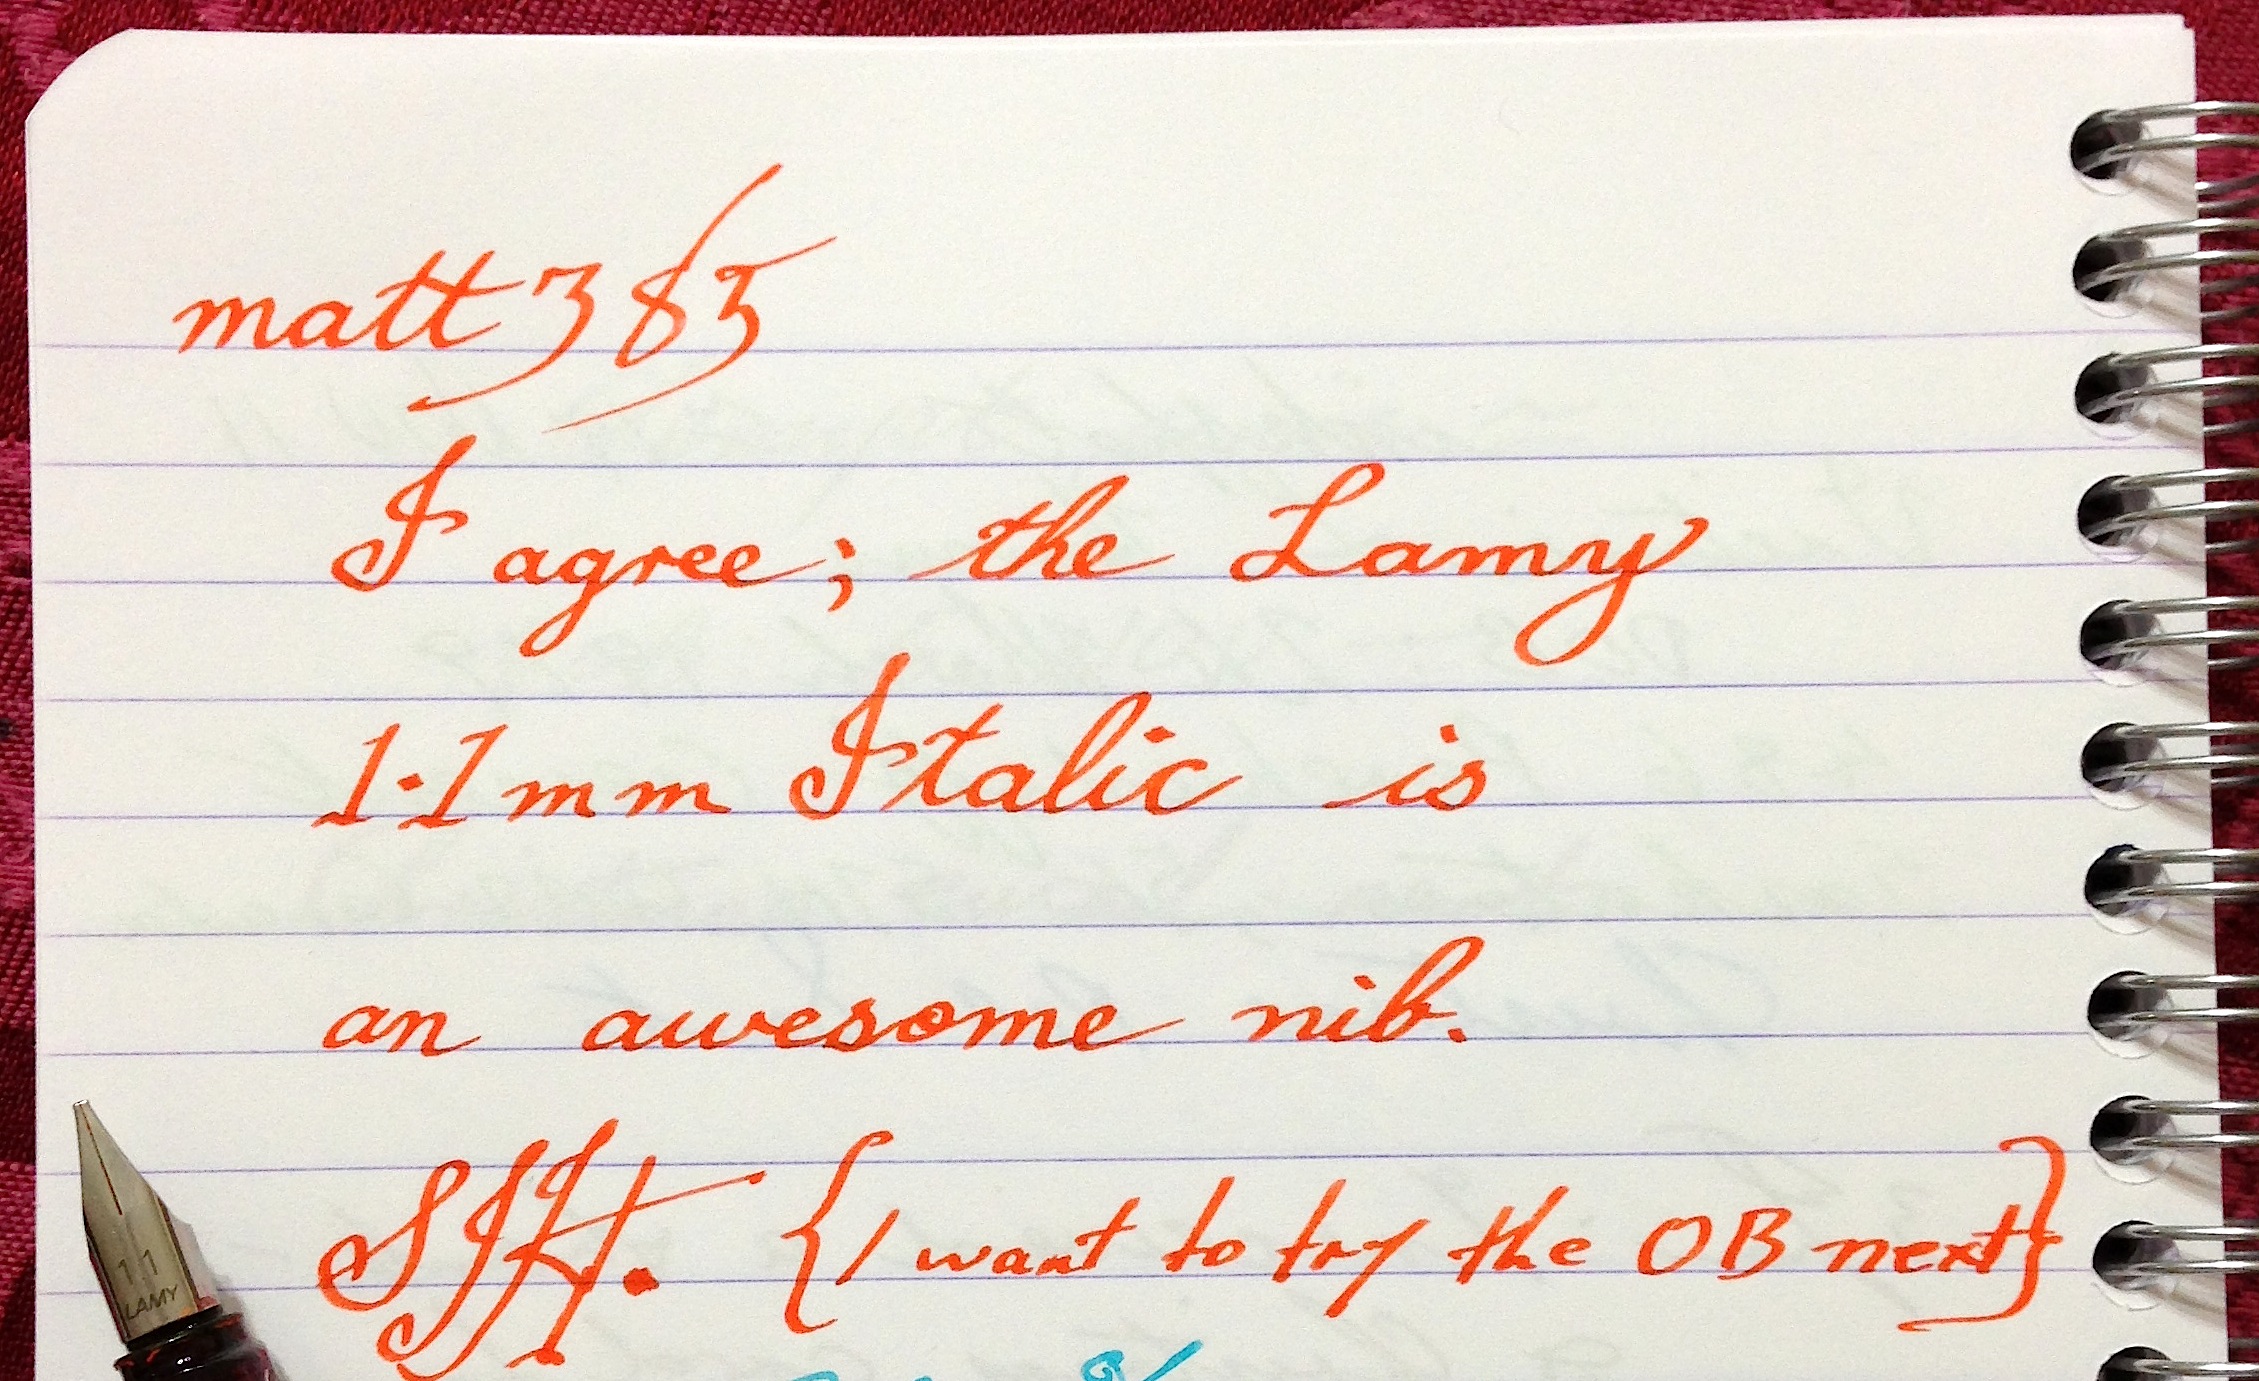 matt385
I agree; the Lamy
1.1mm Italic is
an awesome nib.
SJH. {I want to try the OB next}
1.1
LAMY